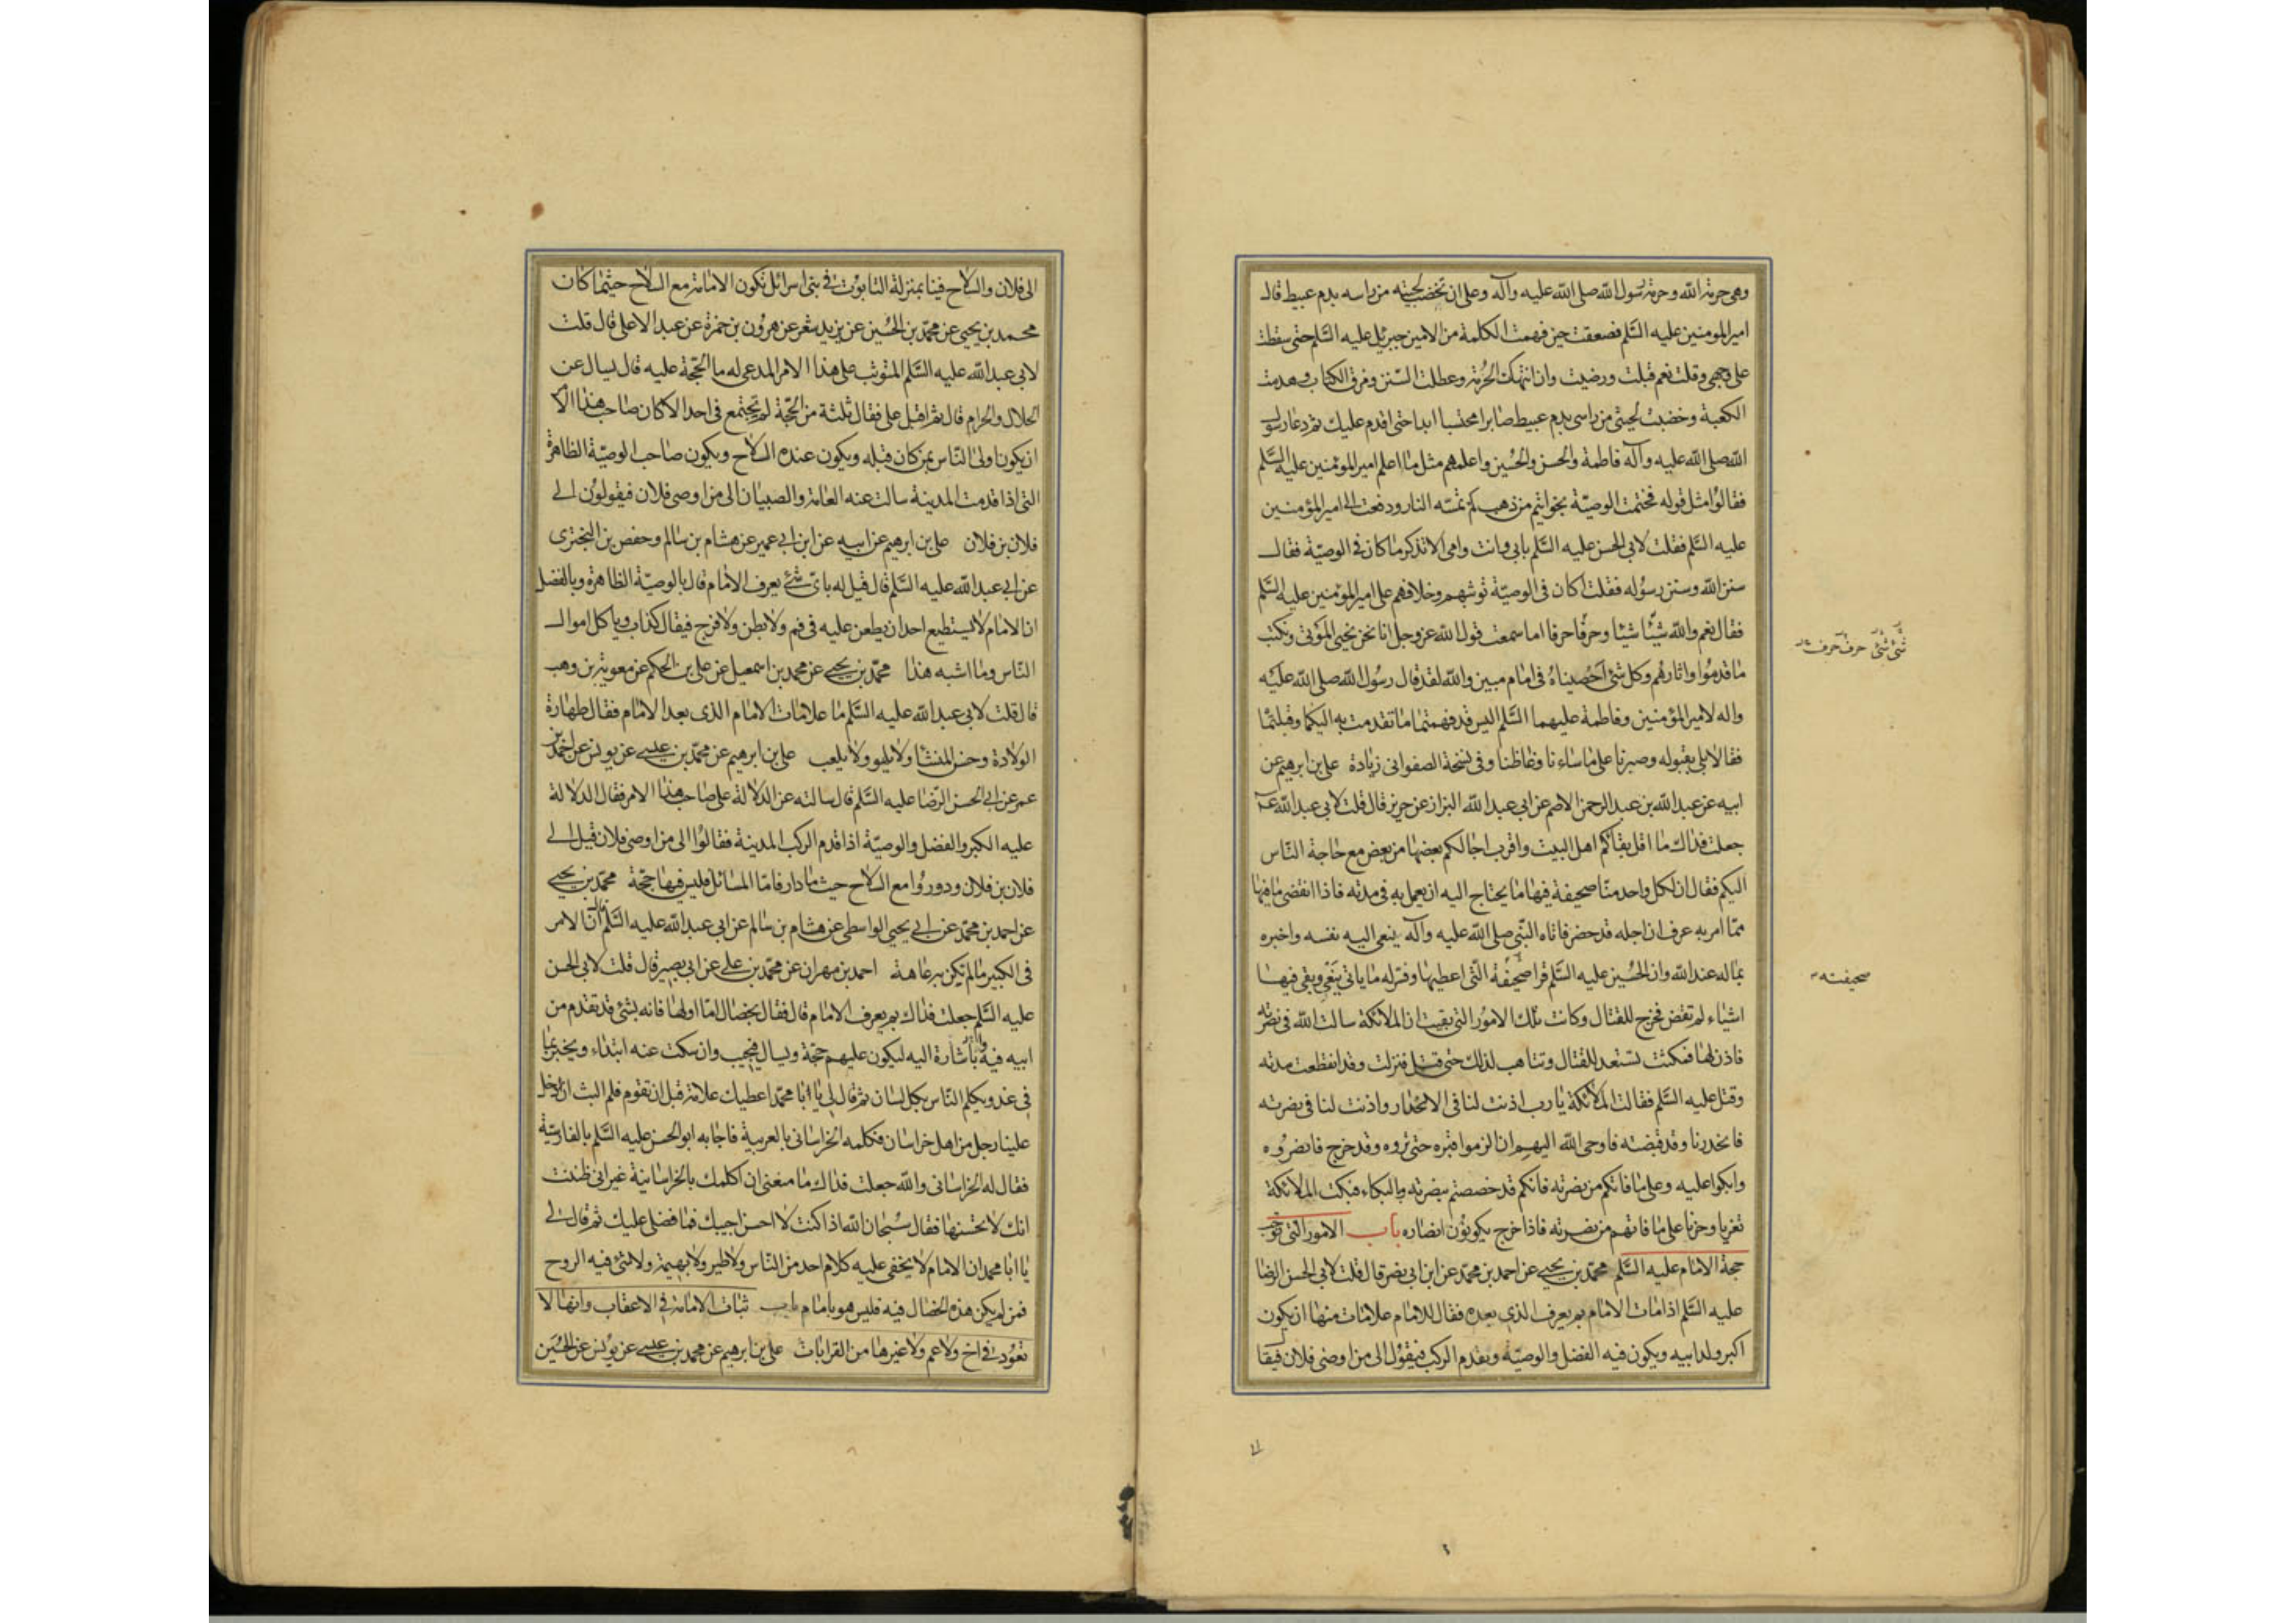 وهی حرمة الله وحرمة رسول الله صلی الله علیه وآله وعلی ان تخضب لحیته من راسه بدم عبیط قال
امیر المومنین علیه السلم فصعقت حین فهمت الکلمة من الامین جبرئیل علیه السلم حتی سقطت
علی وجهی وقلت نعم قبلت ورضیت وان انتهکت الحرمة وعطلت السنن ومزق الکتاب وهدمت
الکعبة وخضبت لحیتی من راسی بدم عبیط صابرا محتسبا ابدا حتی اقدم علیك ثم دعا رسول
الله صلی الله علیه وآله فاطمة والحسن والحسین واعلمهم مثل ما اعلم امیر المؤمنین علیه السلم
فقالوا مثل قوله فختمت الوصیة بخواتیم من ذهب لم تمسه النار ودفعت الی امیر المؤمنین
علیه السلم فقلت لابی الحسن علیه السلم بابی وانت وامی الا تذکر ما کان فی الوصیة فقال
سنن الله وسنن رسوله فقلت اکان فی الوصیة توثبهم وخلافهم علی امیر المؤمنین علیه السلم
فقال نعم والله شیئا شیئا وحرفا حرفا اما سمعت قول الله عز وجل انا نحن نحیی الموتی ونکتب
شئ شئ حرف حرف
ما قدموا واثارهم وکل شئ احصیناه فی امام مبین والله لقد قال رسول الله صلی الله علیه
واله لامیر المؤمنین وفاطمة علیهما السلم الیس قد فهمتما ما تقدمت به الیکما وقبلتما
فقالا بلی بقبوله وصبرنا علی ما ساءنا وغاظنا وفی نسخة الصفوانی زیادة علی بن ابرهیم عن
ابیه عن عبد الله بن عبد الرحمن الاصم عن ابی عبد الله البزاز عن حریز قال قلت لابی عبد الله ع
جعلت فداك ما اقل بقائکم اهل البیت واقرب اجالکم بعضها من بعض مع حاجة الناس
الیکم فقال ان لکل واحد منا صحیفة فیها ما یحتاج الیه ان یعمل به فی مدته فاذا انقضی ما فیها
مما امر به عرف ان اجله قد حضر فاتاه النبی صلی الله علیه وآله ینعی الیه نفسه واخبره
بما له عند الله وان الحسین علیه السلم قرا صحیفة التی اعطیها وفسر له ما یاتی بنعی وبقی فیها
صحیفته
اشیاء لم تقض فخرج للقتال وکانت تلك الامور التی بقیت ان الملائکة سالت الله فی نصرته
فاذن لها فمکثت تستعد للقتال وتتاهب لذلك حتی قتل فنزلت وقد انقطعت مدته
وقتل علیه السلم فقالت الملائکة یا رب اذنت لنا فی الانحدار واذنت لنا فی نصرته
فانحدرنا وقد قبضته فاوحی الله الیهم ان الزموا قبره حتی تروه وقد خرج فانصروه
وابکوا علیه وعلی ما فاتکم من نصرته فانکم قد خصصتم بنصرته وبالبکاء فبکت الملائکة
تعزیا وحزنا علی ما فاتهم من نصرته فاذا خرج یکونون انصاره باب الامور التی توجب
حجة الامام علیه السلم محمد بن یحیی عن احمد بن محمد عن ابن ابی نصر قال قلت لابی الحسن الرضا
علیه السلم اذا مات الامام بم یعرف الذی بعده فقال للامام علامات منها ان یکون
اکبر ولد ابیه ویکون فیه الفضل والوصیة ویقدم الرکب فیقول الی من اوصی فلان فیقال
الی فلان والسلاح فینا بمنزلة التابوت فی بنی اسرائل تکون الامامة مع السلاح حیثما کان
محمد بن یحیی عن محمد بن الحسین عن یزید شعر عن هرون بن حمزة عن عبد الاعلی قال قلت
لابی عبد الله علیه السلم المتوثب علی هذا الامر المدعی له ما الحجة علیه قال یسال عن
الحلال والحرام قال ثم اقبل علی فقال ثلثة من الحجة لم تجتمع فی احد الا کان صاحب هذا الامر
ان یکون اولی الناس بمن کان قبله ویکون عنده السلاح ویکون صاحب الوصیة الظاهرة
التی اذا قدمت المدینة سالت عنه العامة والصبیان الی من اوصی فلان فیقولون الی
فلان بن فلان علی بن ابرهیم عن ابیه عن ابن ابی عمیر عن هشام بن سالم وحفص بن البختری
عن ابی عبد الله علیه السلم قال قیل له بای شئ یعرف الامام قال بالوصیة الظاهرة وبالفضل
ان الامام لا یستطیع احد ان یطعن علیه فی فم ولا بطن ولا فرج فیقال کذاب ویاکل اموال
الناس وما اشبه هذا محمد بن یحیی عن محمد بن اسمعیل عن علی بن الحکم عن معویة بن وهب
قال قلت لابی عبد الله علیه السلم ما علامات الامام الذی بعد الامام فقال طهارة
الولادة وحسن المنشا ولا یلهو ولا یلعب علی بن ابرهیم عن محمد بن عیسی عن یونس عن احمد بن
عمر عن ابی الحسن الرضا علیه السلم قال سالته عن الدلالة علی صاحب هذا الامر فقال الدلالة
علیه الکبر والفضل والوصیة اذا قدم الرکب المدینة فقالوا الی من اوصی فلان قیل الی
فلان بن فلان ودوروا مع السلاح حیث ما دار فاما المسائل فلیس فیها حجة محمد بن یحیی
عن احمد بن محمد عن ابی یحیی الواسطی عن هشام بن سالم عن ابی عبد الله علیه السلم قال ان الامر
فی الکبیر ما لم تکن به عاهة احمد بن مهران عن محمد بن علی عن ابی بصیر قال قلت لابی الحسن
علیه السلم جعلت فداك بم یعرف الامام قال فقال بخصال اما اولها فانه بشئ قد تقدم من
ابیه فیه واشارة الیه لیکون علیهم حجة ویسال فیجیب وان سکت عنه ابتداء ویخبر بما
فی غد ویکلم الناس بکل لسان ثم قال لی یا ابا محمد اعطیك علامة قبل ان تقوم فلم البث ان دخل
علینا رجل من اهل خراسان فکلمه الخراسانی بالعربیة فاجابه ابو الحسن علیه السلم بالفارسیة
فقال له الخراسانی والله جعلت فداك ما منعنی ان اکلمك بالخراسانیة غیر انی ظننت
انك لا تحسنها فقال سبحان الله اذا کنت لا احسن اجیبك فما فضلی علیك ثم قال لی
یا ابا محمد ان الامام لا یخفی علیه کلام احد من الناس ولا طیر ولا بهیمة ولا شئ فیه الروح
فمن لم یکن هذه الخصال فیه فلیس هو بامام باب ثبات الامامة فی الاعقاب وانها لا
تعود فی اخ ولا عم ولا غیرها من القرابات علی بن ابرهیم عن محمد بن عیسی عن یونس عن الحسین